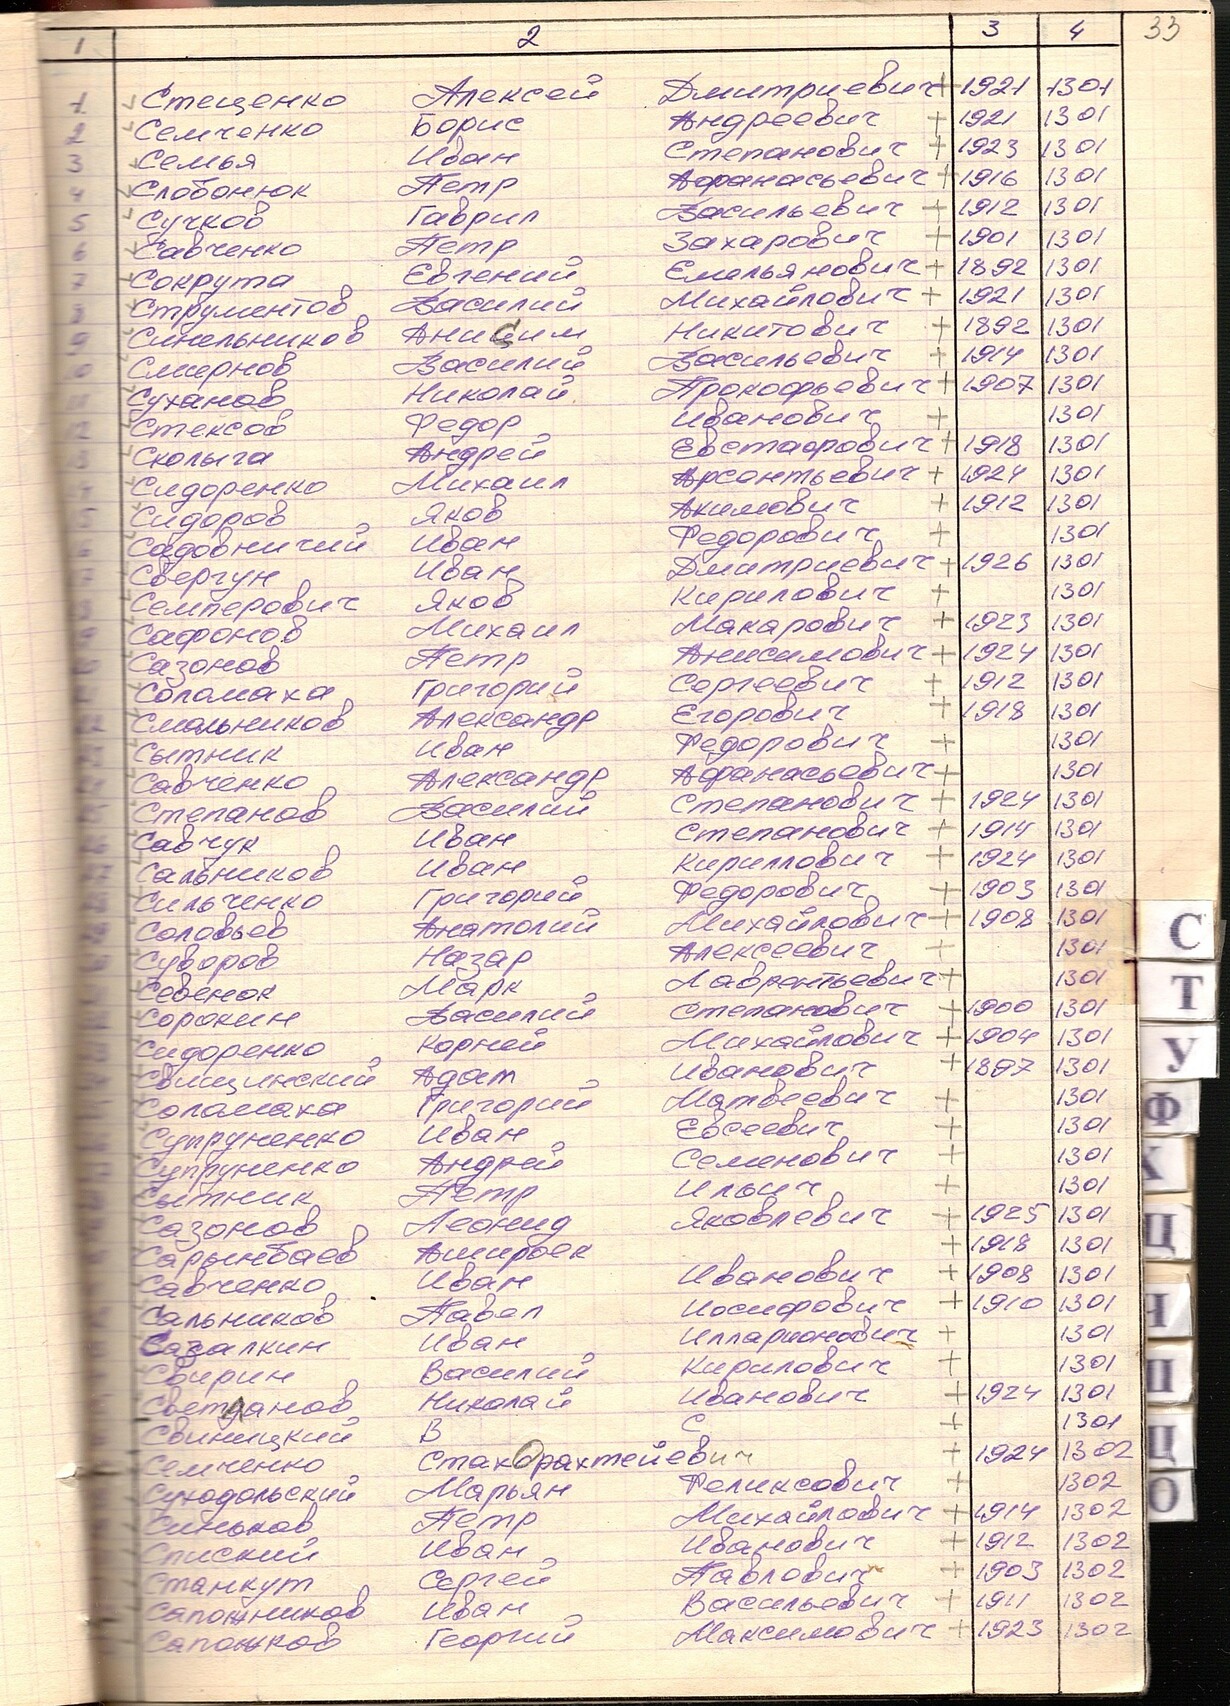 1 2 3 4 33
1 Стеценко Алексей Дмитриевич + 1921 1301
2 Семченко Борис Андреевич + 1921 1301
3 Семья Иван Степанович + 1923 1301
4 Слободнюк Петр Афанасьевич + 1916 1301
5 Сучков Гаврил Васильевич + 1912 1301
6 Савченко Петр Захарович + 1901 1301
7 Сокрута Евгений Емельянович + 1892 1301
8 Струментов Василий Михайлович + 1921 1301
9 Синельников Анисим Никитович + 1892 1301
10 Смирнов Василий Васильевич + 1914 1301
11 Суханов Николай Прокофьевич + 1907 1301
12 Стексов Федор Иванович + 1301
Сколыга Андрей Евстафович + 1918 1301
Сидоренко Михаил Арсентьевич + 1924 1301
Сидоров Яков Акимович + 1912 1301
Садовничий Иван Федорович + 1301
Свергун Иван Дмитриевич + 1926 1301
Семперович Яков Кирилович + 1301
Сафонов Михаил Макарович + 1923 1301
Сазонов Петр Анисимович + 1924 1301
Соломаха Григорий Сергеевич + 1912 1301
Смольников Александр Егорович + 1918 1301
Сытник Иван Федорович + 1301
Савченко Александр Афанасьевич + 1301
Степанов Василий Степанович + 1924 1301
Савчук Иван Степанович + 1914 1301
Сальников Иван Кириллович + 1924 1301
Сильченко Григорий Федорович + 1903 1301
Соловьев Анатолий Михайлович + 1908 1301
Суворов Назар Алексеевич + 1301
Севенюк Марк Лаврентьевич + 1301
Сорокин Василий Степанович + 1900 1301
Сидоренко Корней Михайлович + 1904 1301
Свищинский Адам Иванович + 1897 1301
Соломаха Григорий Матвеевич + 1301
Супруненко Иван Евсеевич + 1301
Супруненко Андрей Семенович + 1301
Сытник Петр Ильич + 1301
Сазонов Леонид Яковлевич + 1925 1301
Сарынбаев Аширбек + 1918 1301
Савченко Иван Иванович + 1908 1301
Сальников Павел Иосифович + 1910 1301
Сазалкин Иван Илларионович + 1301
Свирин Василий Кирилович + 1301
Светланов Николай Иванович + 1924 1301
Свиницкий В С + 1301
Семченко + 1924 1302
Суходольский Марьян Феликсович + 1302
Синьков Петр Михайлович + 1914 1302
Спиский Иван Иванович + 1912 1302
Станкут Сергей Павлович + 1903 1302
Сапожников Иван Васильевич + 1911 1302
Сапожков Георгий Максимович + 1923 1302
С
Т
У
Ф
Х
Ц
Ц
О